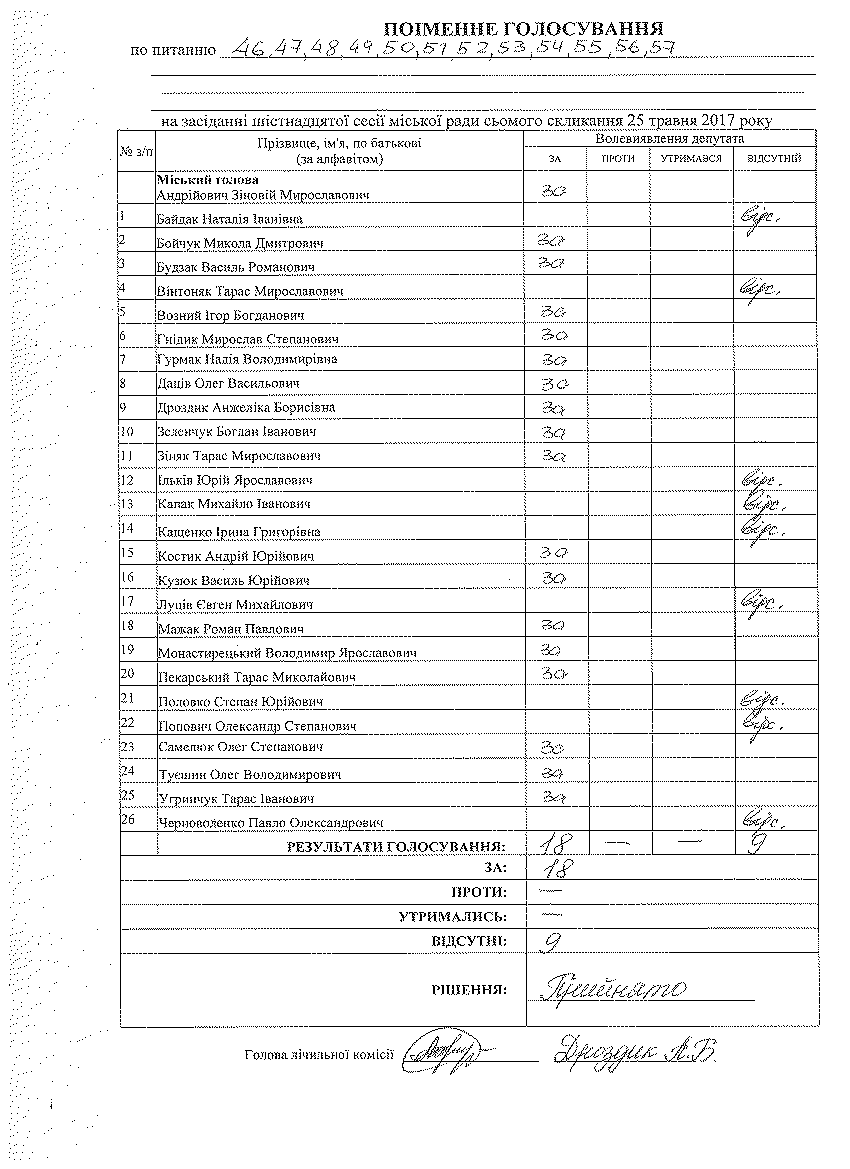 ПОІМЕННЕ ГОЛОСУВАННЯ
по питанню 46,47,48,49,50,51,52,53,54,55,56,57
на засіданні шістнадцятої сесії міської ради сьомого скликання 25 травня 2017 року
№ з/п Прізвище, ім'я, по батькові (за алфавітом) Волевиявлення депутата
ЗА ПРОТИ УТРИМАВСЯ ВІДСУТНІЙ
Міський голова
Андрійович Зіновій Мирославович за
1 Байдак Наталія Іванівна відс.
2 Бойчук Микола Дмитрович за
3 Будзак Василь Романович за
4 Вінтоняк Тарас Мирославович відс.
5 Возний Ігор Богданович за
6 Гнідик Мирослав Степанович за
7 Гурмак Надія Володимирівна за
8 Даців Олег Васильович за
9 Дроздик Анжеліка Борисівна за
10 Зеленчук Богдан Іванович за
11 Зіняк Тарас Мирославович за
12 Ільків Юрій Ярославович відс.
13 Капак Михайло Іванович відс.
14 Кащенко Ірина Григорівна відс.
15 Костик Андрій Юрійович за
16 Кузюк Василь Юрійович за
17 Луців Євген Михайлович відс.
18 Мажак Роман Павлович за
19 Монастирецький Володимир Ярославович за
20 Пекарський Тарас Миколайович за
21 Половко Степан Юрійович відс.
22 Попович Олександр Степанович відс.
23 Самелюк Олег Степанович за
24 Туєшин Олег Володимирович за
25 Угринчук Тарас Іванович за
26 Черноволенко Павло Олександрович відс.
РЕЗУЛЬТАТИ ГОЛОСУВАННЯ: 18 — — 9
ЗА: 18
ПРОТИ: —
УТРИМАЛИСЬ: —
ВІДСУТНІ: 9
РІШЕННЯ: Прийнято
Голова лічильної комісії Дроздик А.Б.